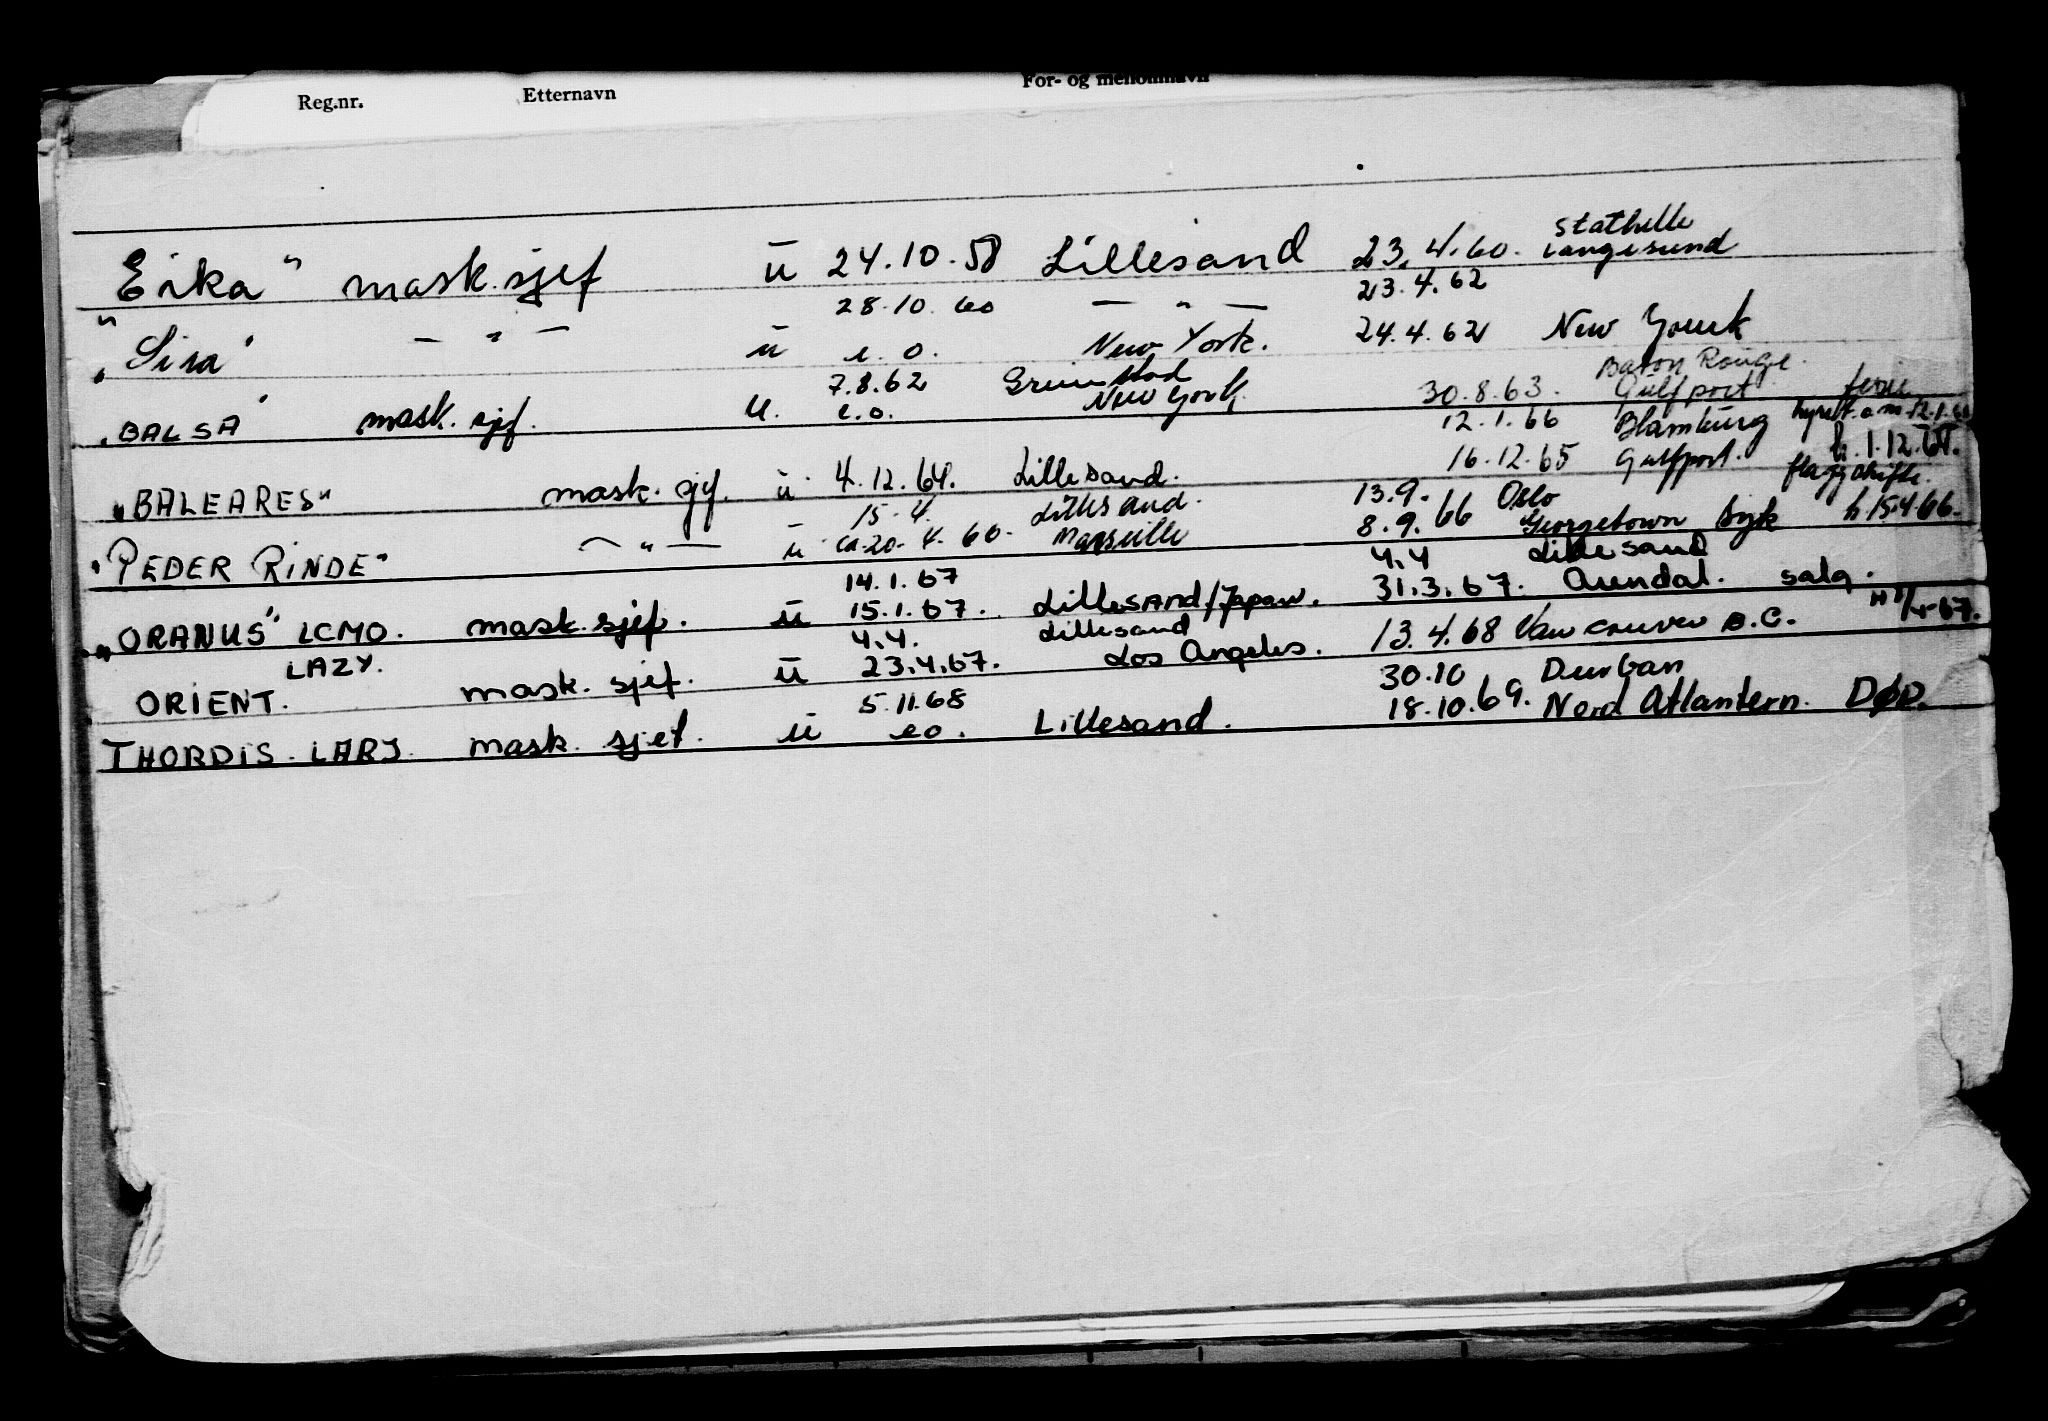 Reg.nr. Etternavn For- og mellomnavn
Erika" mask.sjef u 24.10.58 Lillesand 23.4.60. Stathelle Langesund
28.10.60 — " — 23.4.62
"Sira" — " — u e.o. New York. 24.4.62 New Yourk
7.8.62 Grimstad 30.8.63. Baton Rouge. Gulfport ferie
"BALSA" mask.sjef. u. e.o. New York 12.1.66 Hamburg hyrelt. o m. 12.1.66
16.12.65 Gulfport. h. 1.12.65.
"BALEARES" mask. sjf. u 4.12.64. Lillesand. flaggskifte.
15.4. Lillesand. 13.9. Oslo
"PEDER RINDE" — " — u ca. 20. 4. 60. Marseille 8.9.66 Georgetown syk h 15.4.66.
14.1.67 4.4 Lillesand
"ORANUS" LCMO. mask.sjef. u 15.1.67. Lillesand/Japan. 31.3.67. Arendal. salg.
LAZY. 4.4. Lillesand H 8/4-67.
ORIENT. mask. sjef. u 23.4.67. Los Angeles. 13.4.68 Vancouver B.C.
5.11.68 30.10 Durban
THORDIS. LARJ. mask. sjef. u eo. Lillesand. 18.10.69. Nord Atlantern. DØD.